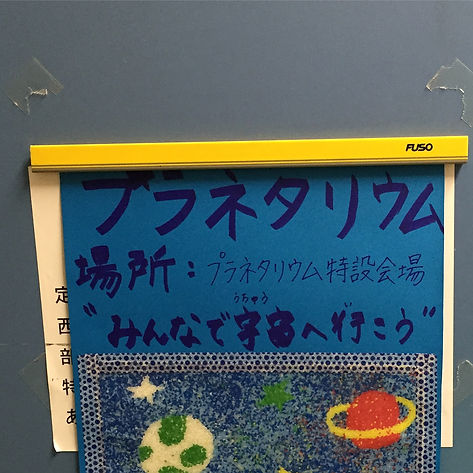 FUSO
プラネタリウム
場所：プラネタリウム特設会場
うちゅう
"みんなで宇宙へ行こう"
定
西
部
特
あ